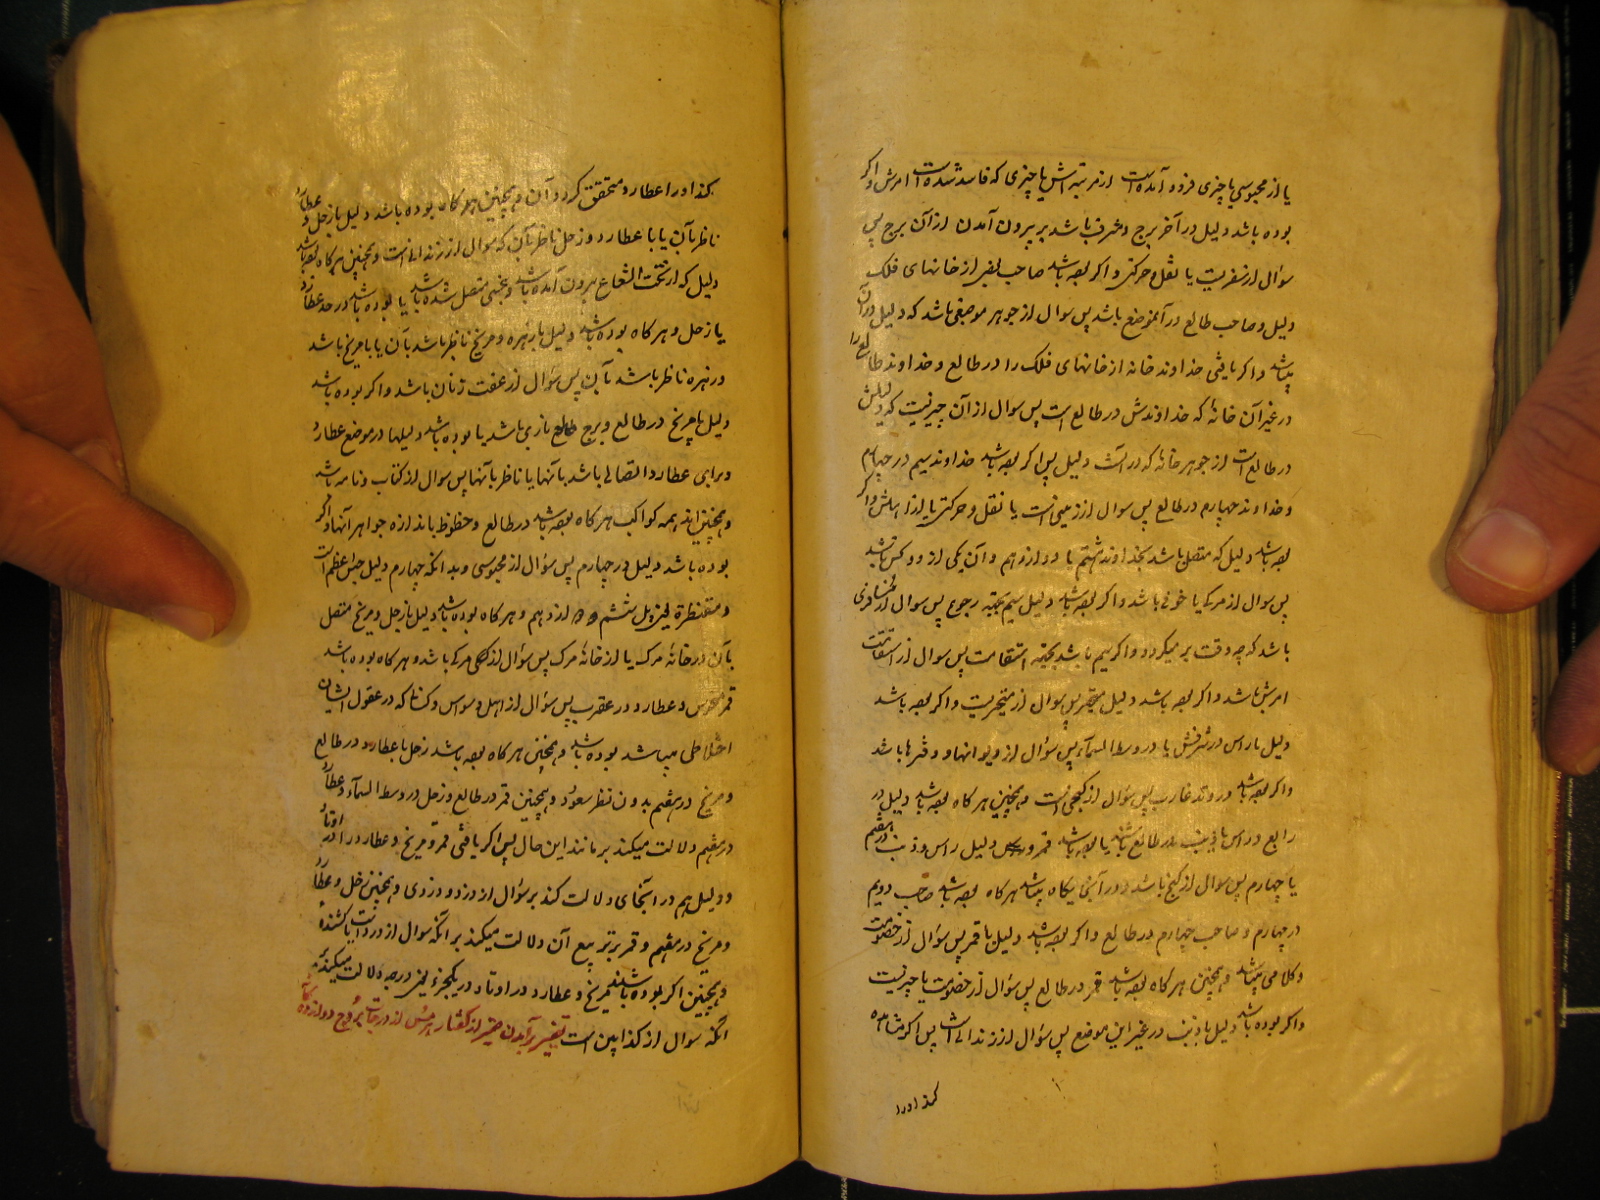 یا از محبوسی یا چیزی فرود آمده است از مرتبه اش یا چیزی که فاسد شده است امرش و اکر
بوده باشد دلیل در آخر برج و مشرف باشد بر بیرون آمدن از آن برج پس
سؤال از سفریت یا نقل و حرکتی و اکر بوده باشد صاحب بعضی از خانهای فلک
دلیل و صاحب طالع در آنموضع باشد پس سوال از جوهر موضعی باشد که دلیل در آن
میباشد و اکر یافتی خداوند خانه از خانهای فلک را در طالع و خداوند طالع را
در غیر آن خانه که خداوندش در طالع است پس سوال از آن چیزیست که دلیلش
در طالع است از جوهر خانه که در انست دلیل پس اکر بوده باشد خداوند سیم در چهارم
و خداوند چهارم در طالع پس سوال از زمینی است یا نقل و حرکتی یا از املاکش و اکر
بوده باشد دلیل که متصل باشد بخداوند هشتم یا دوازدهم و آن یکی از دو نحس باشد
پس سوال از مرکی یا خوفی باشد و اکر بوده باشد دلیل سیم بجهة رجوع پس سوال از مسافری
باشد که چه وقت بر میکردد و اکر سیم باشد بجهة استقامت پس سوال از استقامت
امرش باشد و اکر بوده باشد دلیل متحیر پس سوال از متحیریست و اکر بوده باشد
دلیل با راس در شرفش یا در وسط السمآء پس سؤال از دیوانها و دفترها باشد
و اکر بوده باشد در وتد غارب پس سؤال از کنجی است و همچنین هر کاه بوده باشد دلیل در
رابع و راس با ذنب در طالع باشند یا بوده باشد قمر و دلیل راس و ذنب در هفتم
یا چهارم پس سوال از کنج باشد و در آنجایکاه میباشد هر کاه بوده باشد صاحب دویم
در چهارم و صاحب چهارم در طالع و اکر بوده باشد دلیل با قمر پس سؤال از خصومت
و کلامی میباشد و همچنین هر کاه بوده باشد قمر در طالع پس سؤال از خصومت یا چیزیست
و اکر بوده باشد دلیل با ذنب در غیر این موضع پس سؤال از زندانی است پس اکر مشاهده
کند او را
کند او را عطارد متحقق کردد آن و همچنین هر کاه بوده باشد دلیل با زحل و عطارد
ناظر بآن یا با عطارد و زحل ناظر بآن که سوال از زندانی است و همچنین هر کاه بوده باشد
دلیل که از تحت الشعاع بیرون آمده باشد و بنحسی متصل شده باشد یا بوده باشد در حد عطارد
یا زحل و هر کاه بوده باشد دلیل با زهره و مریخ ناظر باشد بآن یا با مریخ باشد
و زهره ناظر باشد بآن پس سؤال از عفت زنان باشد و اکر بوده باشد
دلیل با مریخ در طالع و برج طالع ناری باشد یا بوده باشد دلیلها در موضع عطارد
و برای عطارد اتصالی باشد بآنها یا ناظر بآنها پس سوال از کتاب و نامه باشد
و همچنین اند همه کواکب هر کاه بوده باشد در طالع و حظوظ باندازه جواهر آنها و اکر
بوده باشد دلیل در چهارم پس سؤال از محبوسی و بدانکه چهارم دلیل حبس اعظم است
ششم و دوازدهم و هر کاه بوده باشد دلیل با زحل و مریخ متصل
بآن در خانهٔ مرک یا از خانهٔ مرک پس سؤال از مرکی باشد و هر کاه بوده باشد
قمر منحوس و عطارد در عقرب پس سؤال از اهل وسواس و کسانی که در عقول ایشان
اختلاطی میباشد بوده باشد و همچنین هر کاه بوده باشد زحل با عطارد در طالع
و مریخ در هفتم بدون نظر سعود و همچنین قمر در طالع و زحل در وسط السمآء و عطارد
در هفتم دلالت میکند بر مانند این حال پس اکر یافتی قمر و مریخ و عطارد در اوتاد
و دلیل هم در آنجای دلالت کند بر سؤال از دزد و دزدی و همچنین زحل و عطارد
و مریخ در هفتم و قمر بر تربیع آن دلالت میکند بر آنکه سوال از دزد است یا کشنده
و همچنین اکر بوده باشند مریخ و عطارد در اوتاد در یکجزء یعنی درجه دلالت میکند بر
آنکه سوال از کذابین است تفسیر بر آمدن ضمیر از کفتار هرمس از درجات بروج دوازده کانه